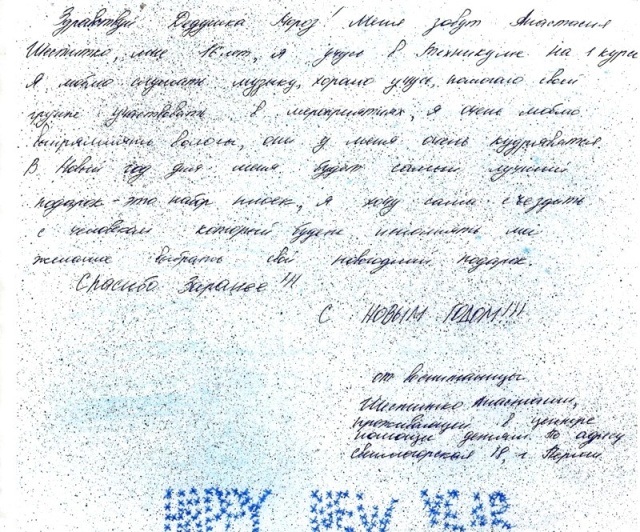 Здравствуй Дедушка Мороз! Меня зовут Анастасия
мне 16 лет, я учусь в Техникуме на 1 курсе
Я люблю слушать музыку, хорошо учусь, помогаю своей
группе участвовать в мероприятиях, я очень люблю
выпрямлять волосы, они у меня очень кудрявятся.
В Новый год для меня будет самый лучший
подарок - это набор плоек, я хочу сама съездить
с человеком который будет исполнять моё
желание выбрать свой новогодний подарок.
Спасибо Заранее !!!
С НОВЫМ ГОДОМ!!!
от воспитанницы
Анастасии,
проживающей в центре
помощи детям. По адресу
18, г. Пермь.
HAPPY NEW YEAR